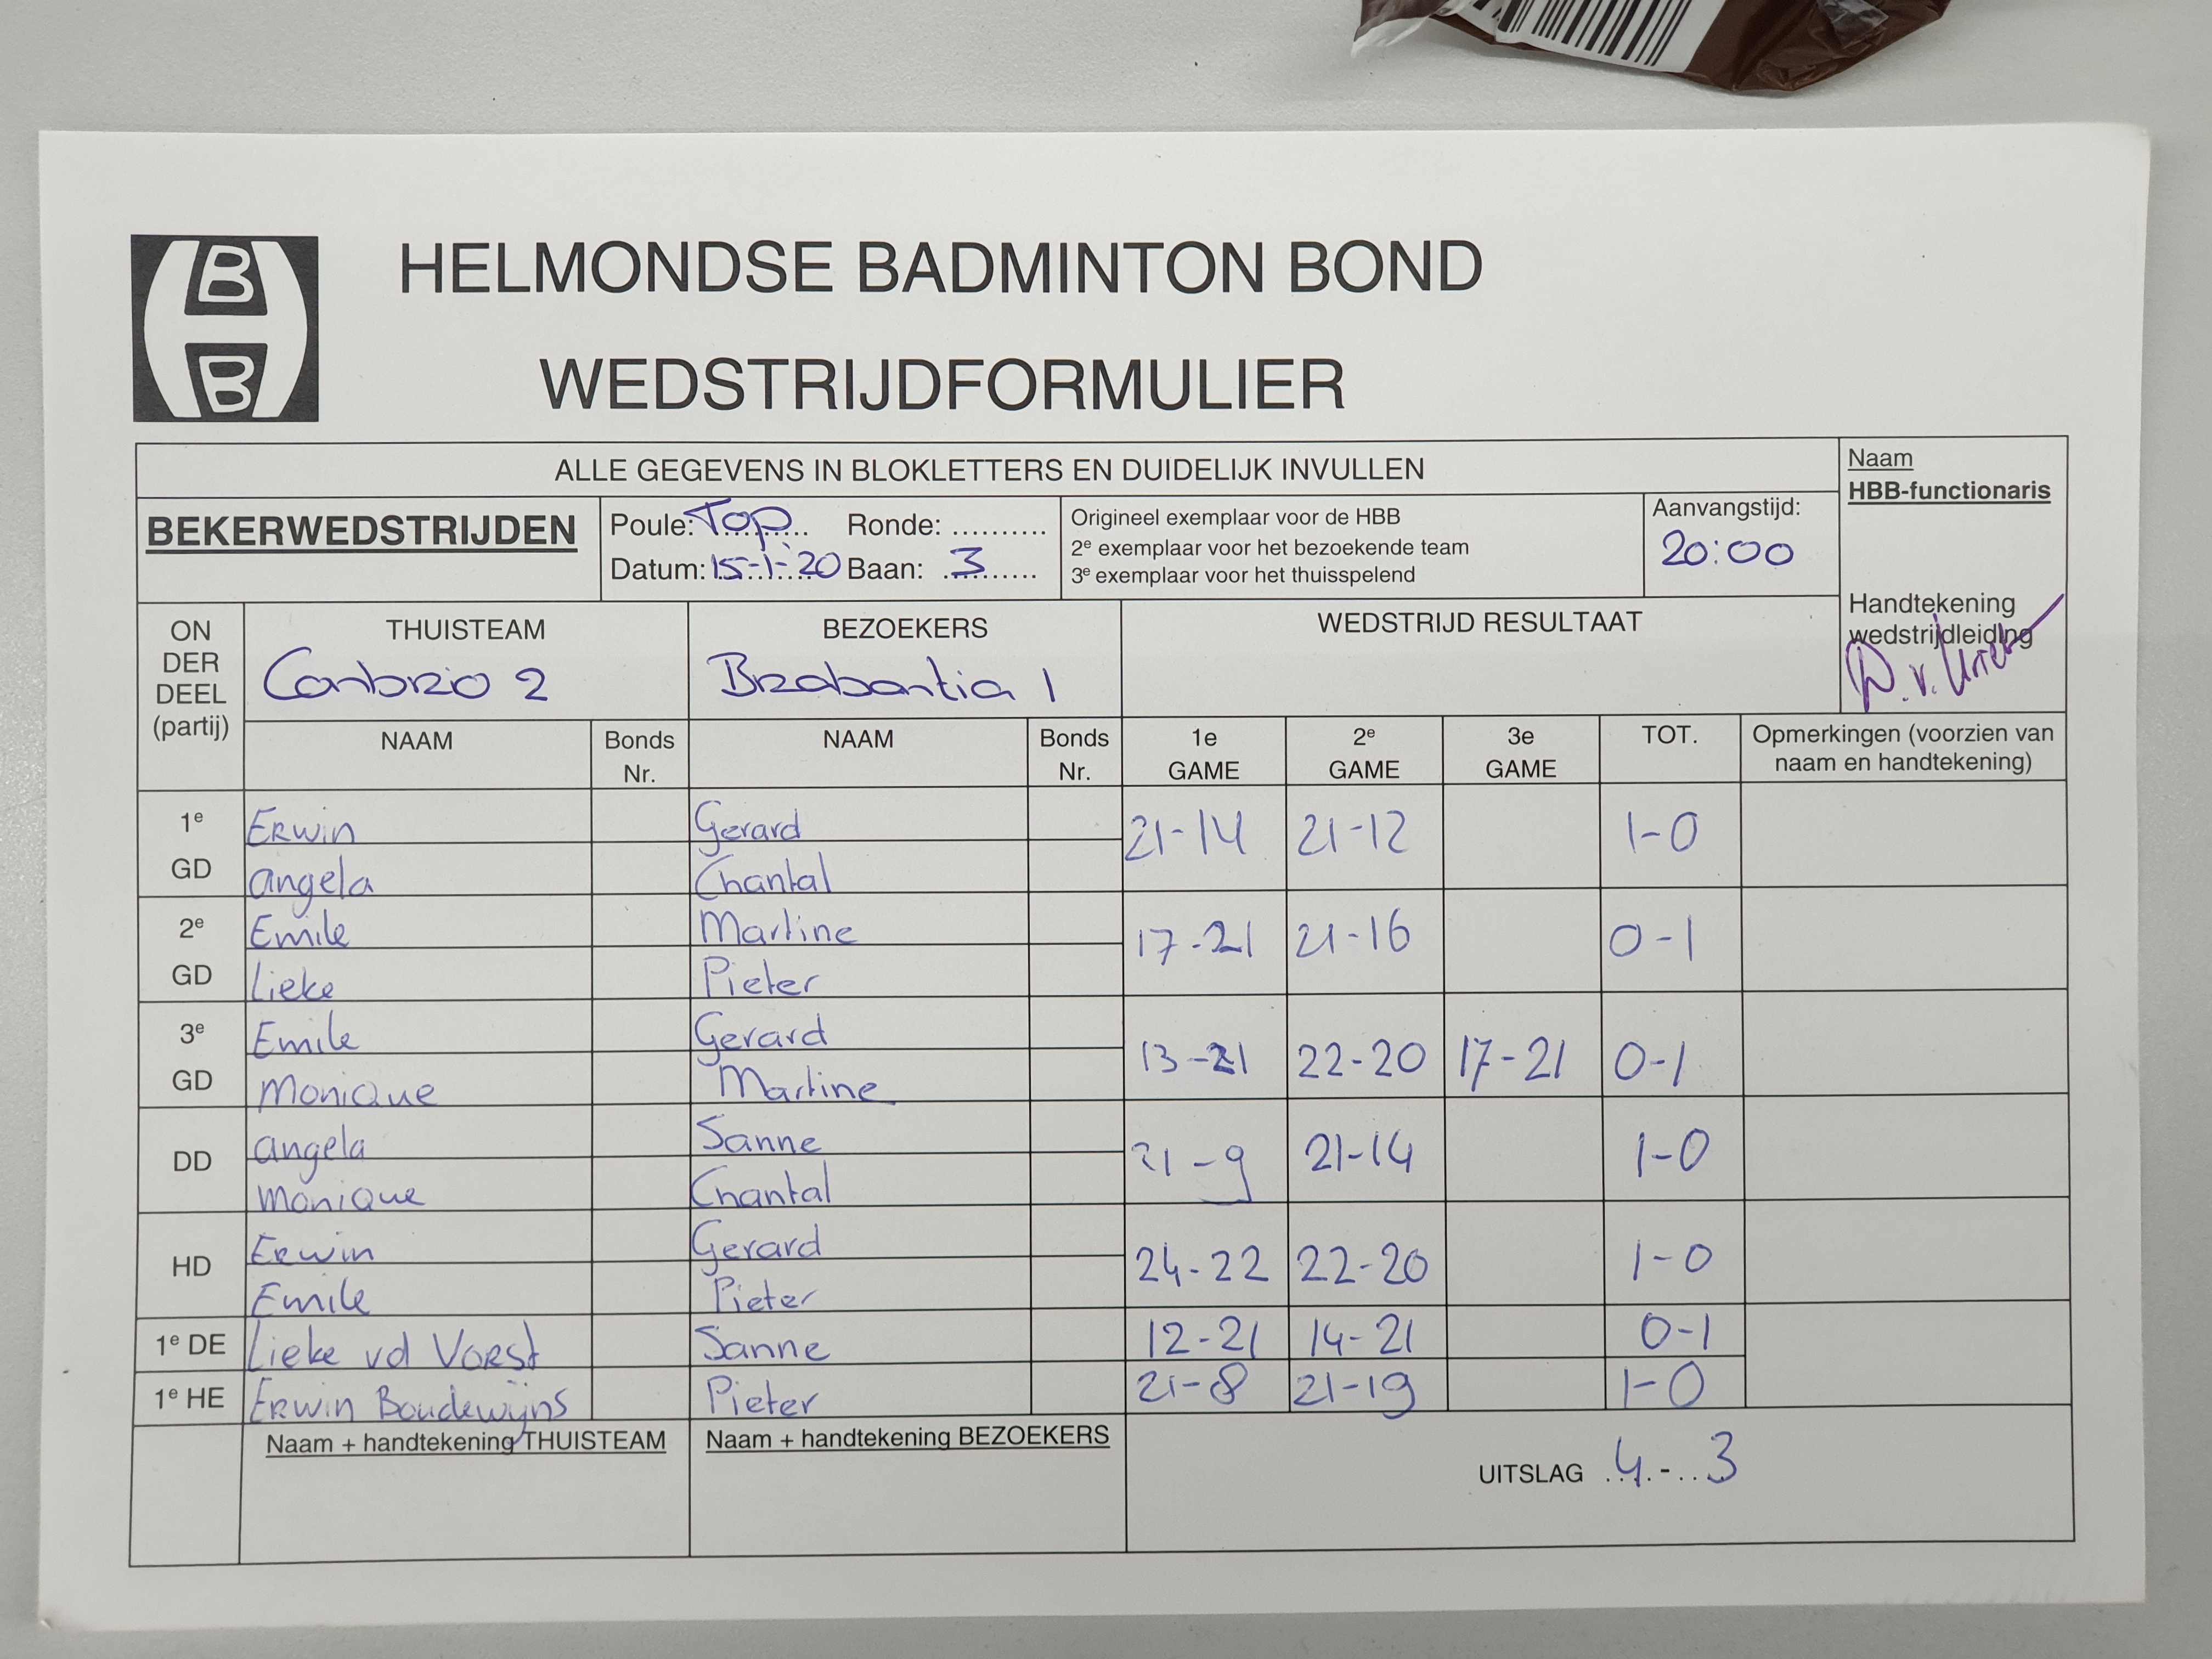 HELMONDSE BADMINTON BOND
WEDSTRIJDFORMULIER
ALLE GEGEVENS IN BLOKLETTERS EN DUIDELIJK INVULLEN
Naam
HBB-functionaris
BEKERWEDSTRIJDEN
Poule: Top Ronde: ..........
Datum: 15-1-'20 Baan: 3
Origineel exemplaar voor de HBB
2e exemplaar voor het bezoekende team
3e exemplaar voor het thuisspelend
Aanvangstijd:
20:00
Handtekening
wedstrijdleiding
ON
DER
DEEL
(partij)
THUISTEAM
Conbrio 2
BEZOEKERS
Brabantia 1
WEDSTRIJD RESULTAAT
NAAM Bonds Nr. NAAM Bonds Nr. 1e GAME 2e GAME 3e GAME TOT. Opmerkingen (voorzien van
naam en handtekening)
1e Erwin Gerard 21-14 21-12 1-0
GD Angela Chantal
2e Emile Martine 17-21 21-16 0-1
GD Lieke Pieter
3e Emile Gerard 13-21 22-20 17-21 0-1
GD Monique Martine
DD Angela Sanne 21-9 21-14 1-0
Monique Chantal
HD Erwin Gerard 24-22 22-20 1-0
Emile Pieter
1e DE Lieke vd Vorst Sanne 12-21 14-21 0-1
1e HE Erwin Boudewijns Pieter 21-8 21-19 1-0
Naam + handtekening THUISTEAM Naam + handtekening BEZOEKERS
UITSLAG 4 - 3